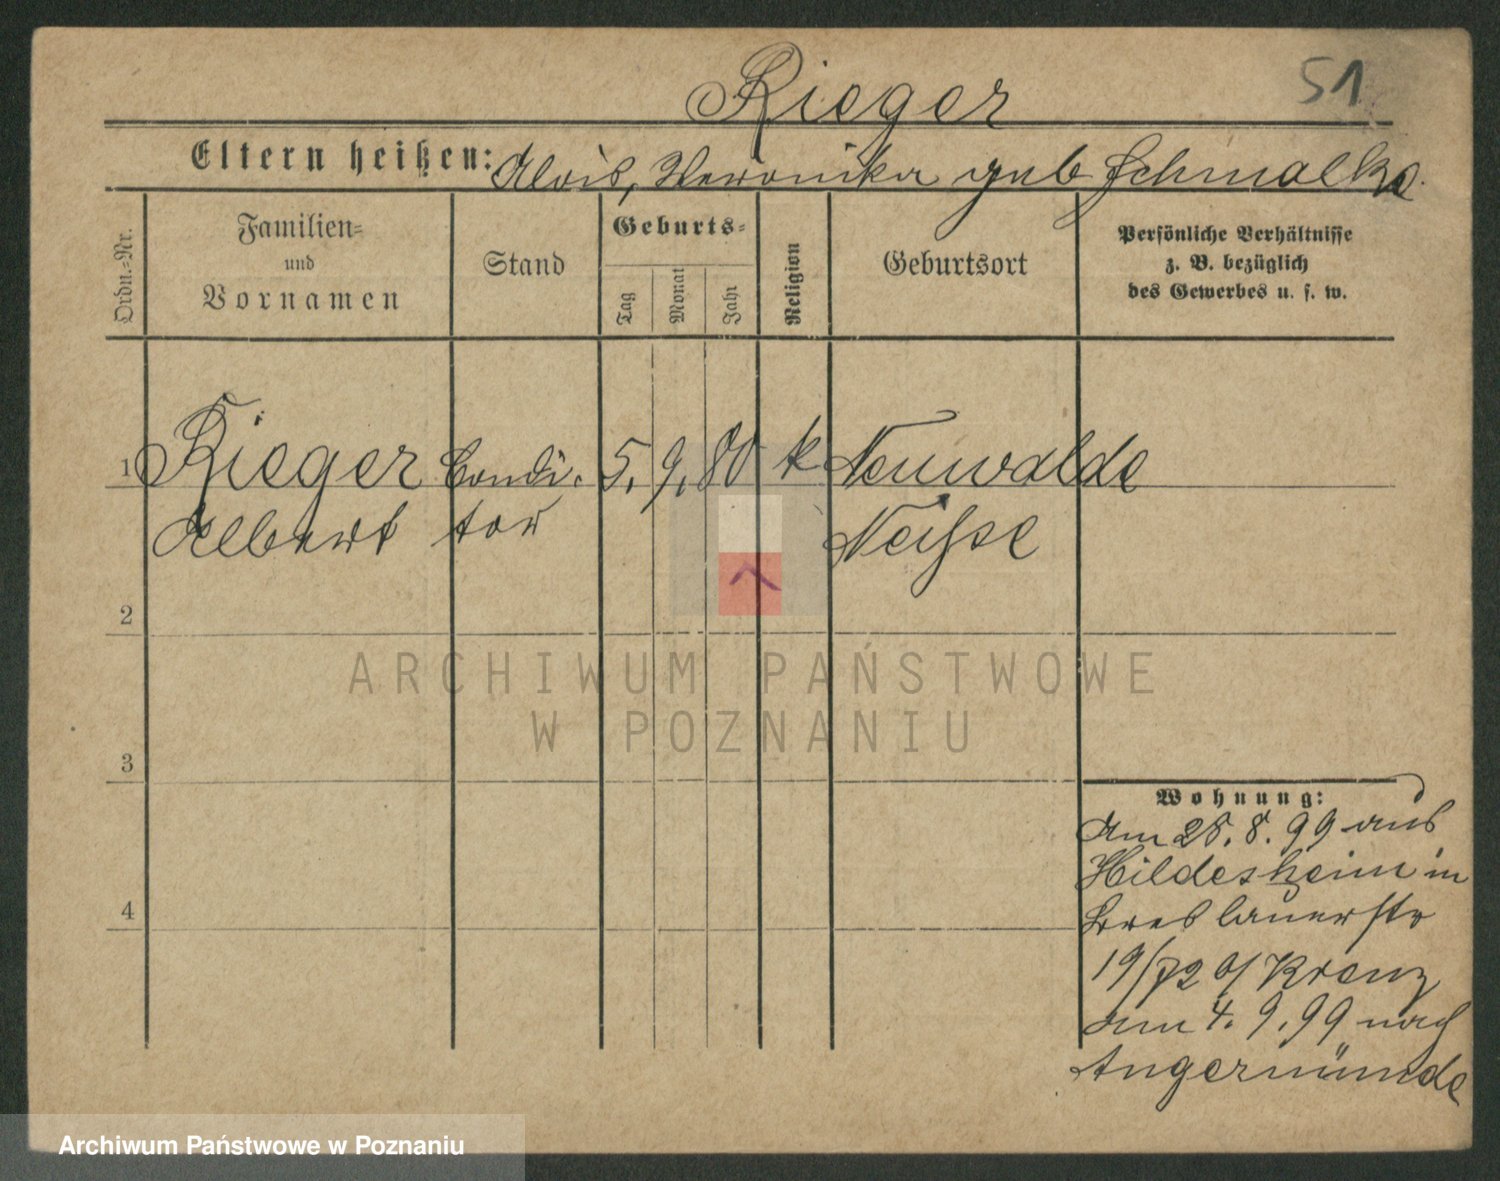 Rieger
51
Eltern heißen: Alois, Veronika geb Schmalke.
Ordn.-Nr.
Familien-
und
Vornamen
Stand
Geburts-
Tag
Monat
Jahr
Religion
Geburtsort
Persönliche Verhältnisse
z. B. bezüglich
des Gewerbes u. s. w.
1 Rieger Condi. 5. 9. 80 k Neuwalde
Albert tor Neiße
2
ARCHIWUM PAŃSTWOWE
W POZNANIU
3
Wohnung:
Am 28. 8. 99 aus
Hildesheim in
Breslauerstr
19/72 b/ Krenz
am 4. 9. 99 nach
Angermünde
4
Archiwum Państwowe w Poznaniu